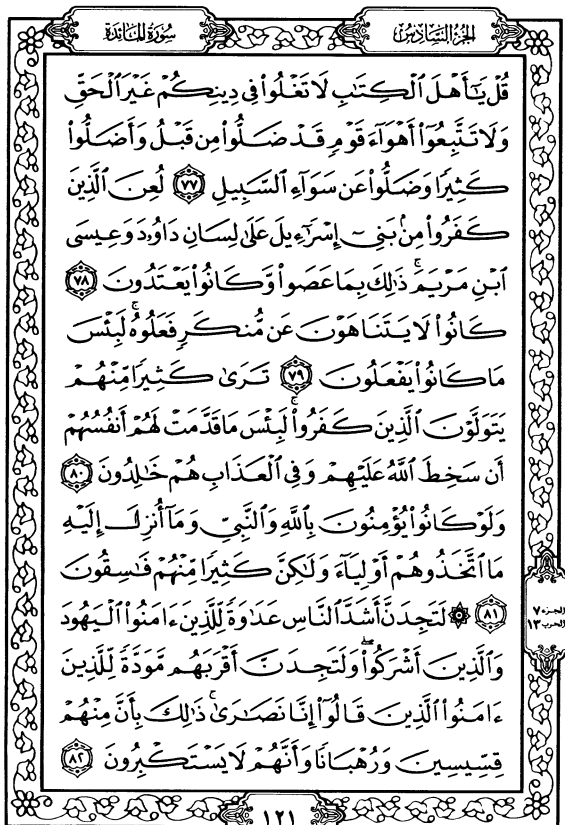 سُورَةُ المَائدة الجُزءُ السَّادِسُ
قُلْ يَٰٓأَهْلَ ٱلْكِتَٰبِ لَا تَغْلُوا۟ فِى دِينِكُمْ غَيْرَ ٱلْحَقِّ
وَلَا تَتَّبِعُوٓا۟ أَهْوَآءَ قَوْمٍ قَدْ ضَلُّوا۟ مِن قَبْلُ وَأَضَلُّوا۟
كَثِيرًا وَضَلُّوا۟ عَن سَوَآءِ ٱلسَّبِيلِ ٧٧ لُعِنَ ٱلَّذِينَ
كَفَرُوا۟ مِنۢ بَنِىٓ إِسْرَٰٓءِيلَ عَلَىٰ لِسَانِ دَاوُۥدَ وَعِيسَى
ٱبْنِ مَرْيَمَ ۚ ذَٰلِكَ بِمَا عَصَوا۟ وَّكَانُوا۟ يَعْتَدُونَ ٧٨
كَانُوا۟ لَا يَتَنَاهَوْنَ عَن مُّنكَرٍ فَعَلُوهُ ۚ لَبِئْسَ
مَا كَانُوا۟ يَفْعَلُونَ ٧٩ تَرَىٰ كَثِيرًا مِّنْهُمْ
يَتَوَلَّوْنَ ٱلَّذِينَ كَفَرُوا۟ ۚ لَبِئْسَ مَا قَدَّمَتْ لَهُمْ أَنفُسُهُمْ
أَن سَخِطَ ٱللَّهُ عَلَيْهِمْ وَفِى ٱلْعَذَابِ هُمْ خَٰلِدُونَ ٨٠
وَلَوْ كَانُوا۟ يُؤْمِنُونَ بِٱللَّهِ وَٱلنَّبِىِّ وَمَآ أُنزِلَ إِلَيْهِ
مَا ٱتَّخَذُوهُمْ أَوْلِيَآءَ وَلَٰكِنَّ كَثِيرًا مِّنْهُمْ فَٰسِقُونَ
٨١ ۞ لَتَجِدَنَّ أَشَدَّ ٱلنَّاسِ عَدَٰوَةً لِّلَّذِينَ ءَامَنُوا۟ ٱلْيَهُودَ
وَٱلَّذِينَ أَشْرَكُوا۟ ۖ وَلَتَجِدَنَّ أَقْرَبَهُم مَّوَدَّةً لِّلَّذِينَ
ءَامَنُوا۟ ٱلَّذِينَ قَالُوٓا۟ إِنَّا نَصَٰرَىٰ ۚ ذَٰلِكَ بِأَنَّ مِنْهُمْ
قِسِّيسِينَ وَرُهْبَانًا وَأَنَّهُمْ لَا يَسْتَكْبِرُونَ ٨٢
الجزء ٧
الحزب ١٣
١٢١